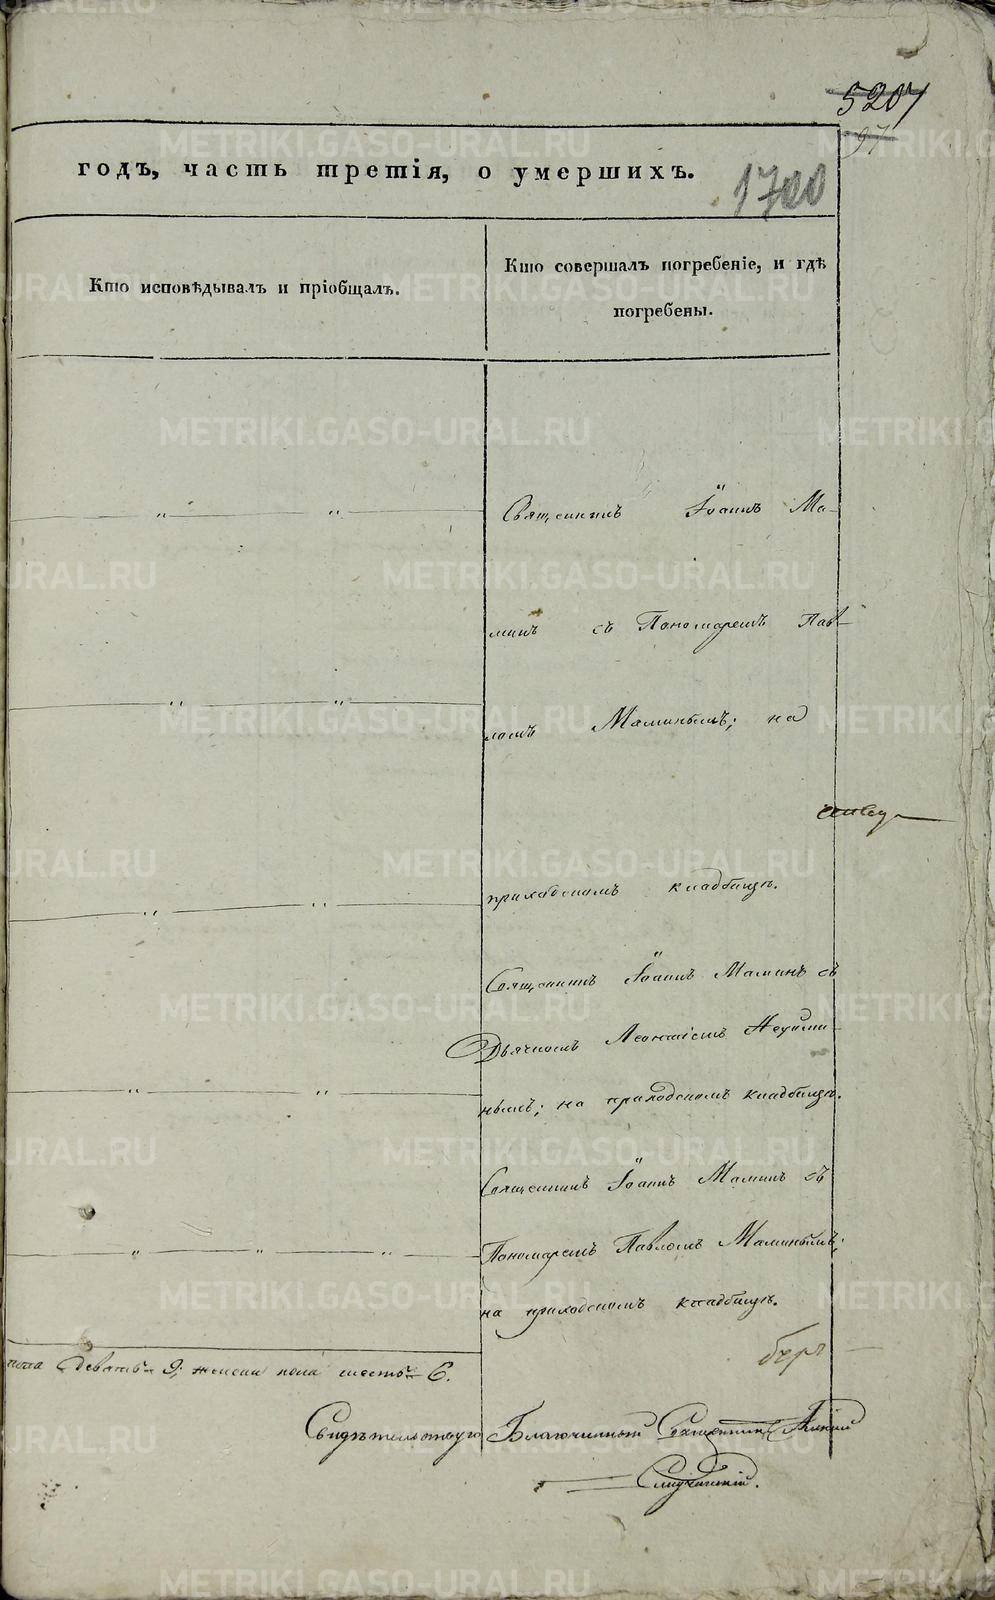 5207
97
годъ, часть третія, о умершихъ.
1700
Кто исповѣдывалъ и пріобщалъ.
Кто совершалъ погребеніе, и гдѣ
погребены.
Священникъ Іоаннъ Ма-
минъ съ Пономаремъ Пав-
ломъ Маминымъ; на
приходскомъ кладбищѣ.
Священникъ Іоаннъ Маминъ съ
Дьячкомъ Леонтіемъ
нымъ; на приходскомъ кладбищѣ.
Священникъ Іоаннъ Маминъ съ
Пономаремъ Павломъ Маминымъ;
на приходскомъ кладбищѣ.
пола девять 9; женска пола шесть 6.
Свидѣтельствую Благочинный Священникъ
METRIKI.GASO-URAL.RU